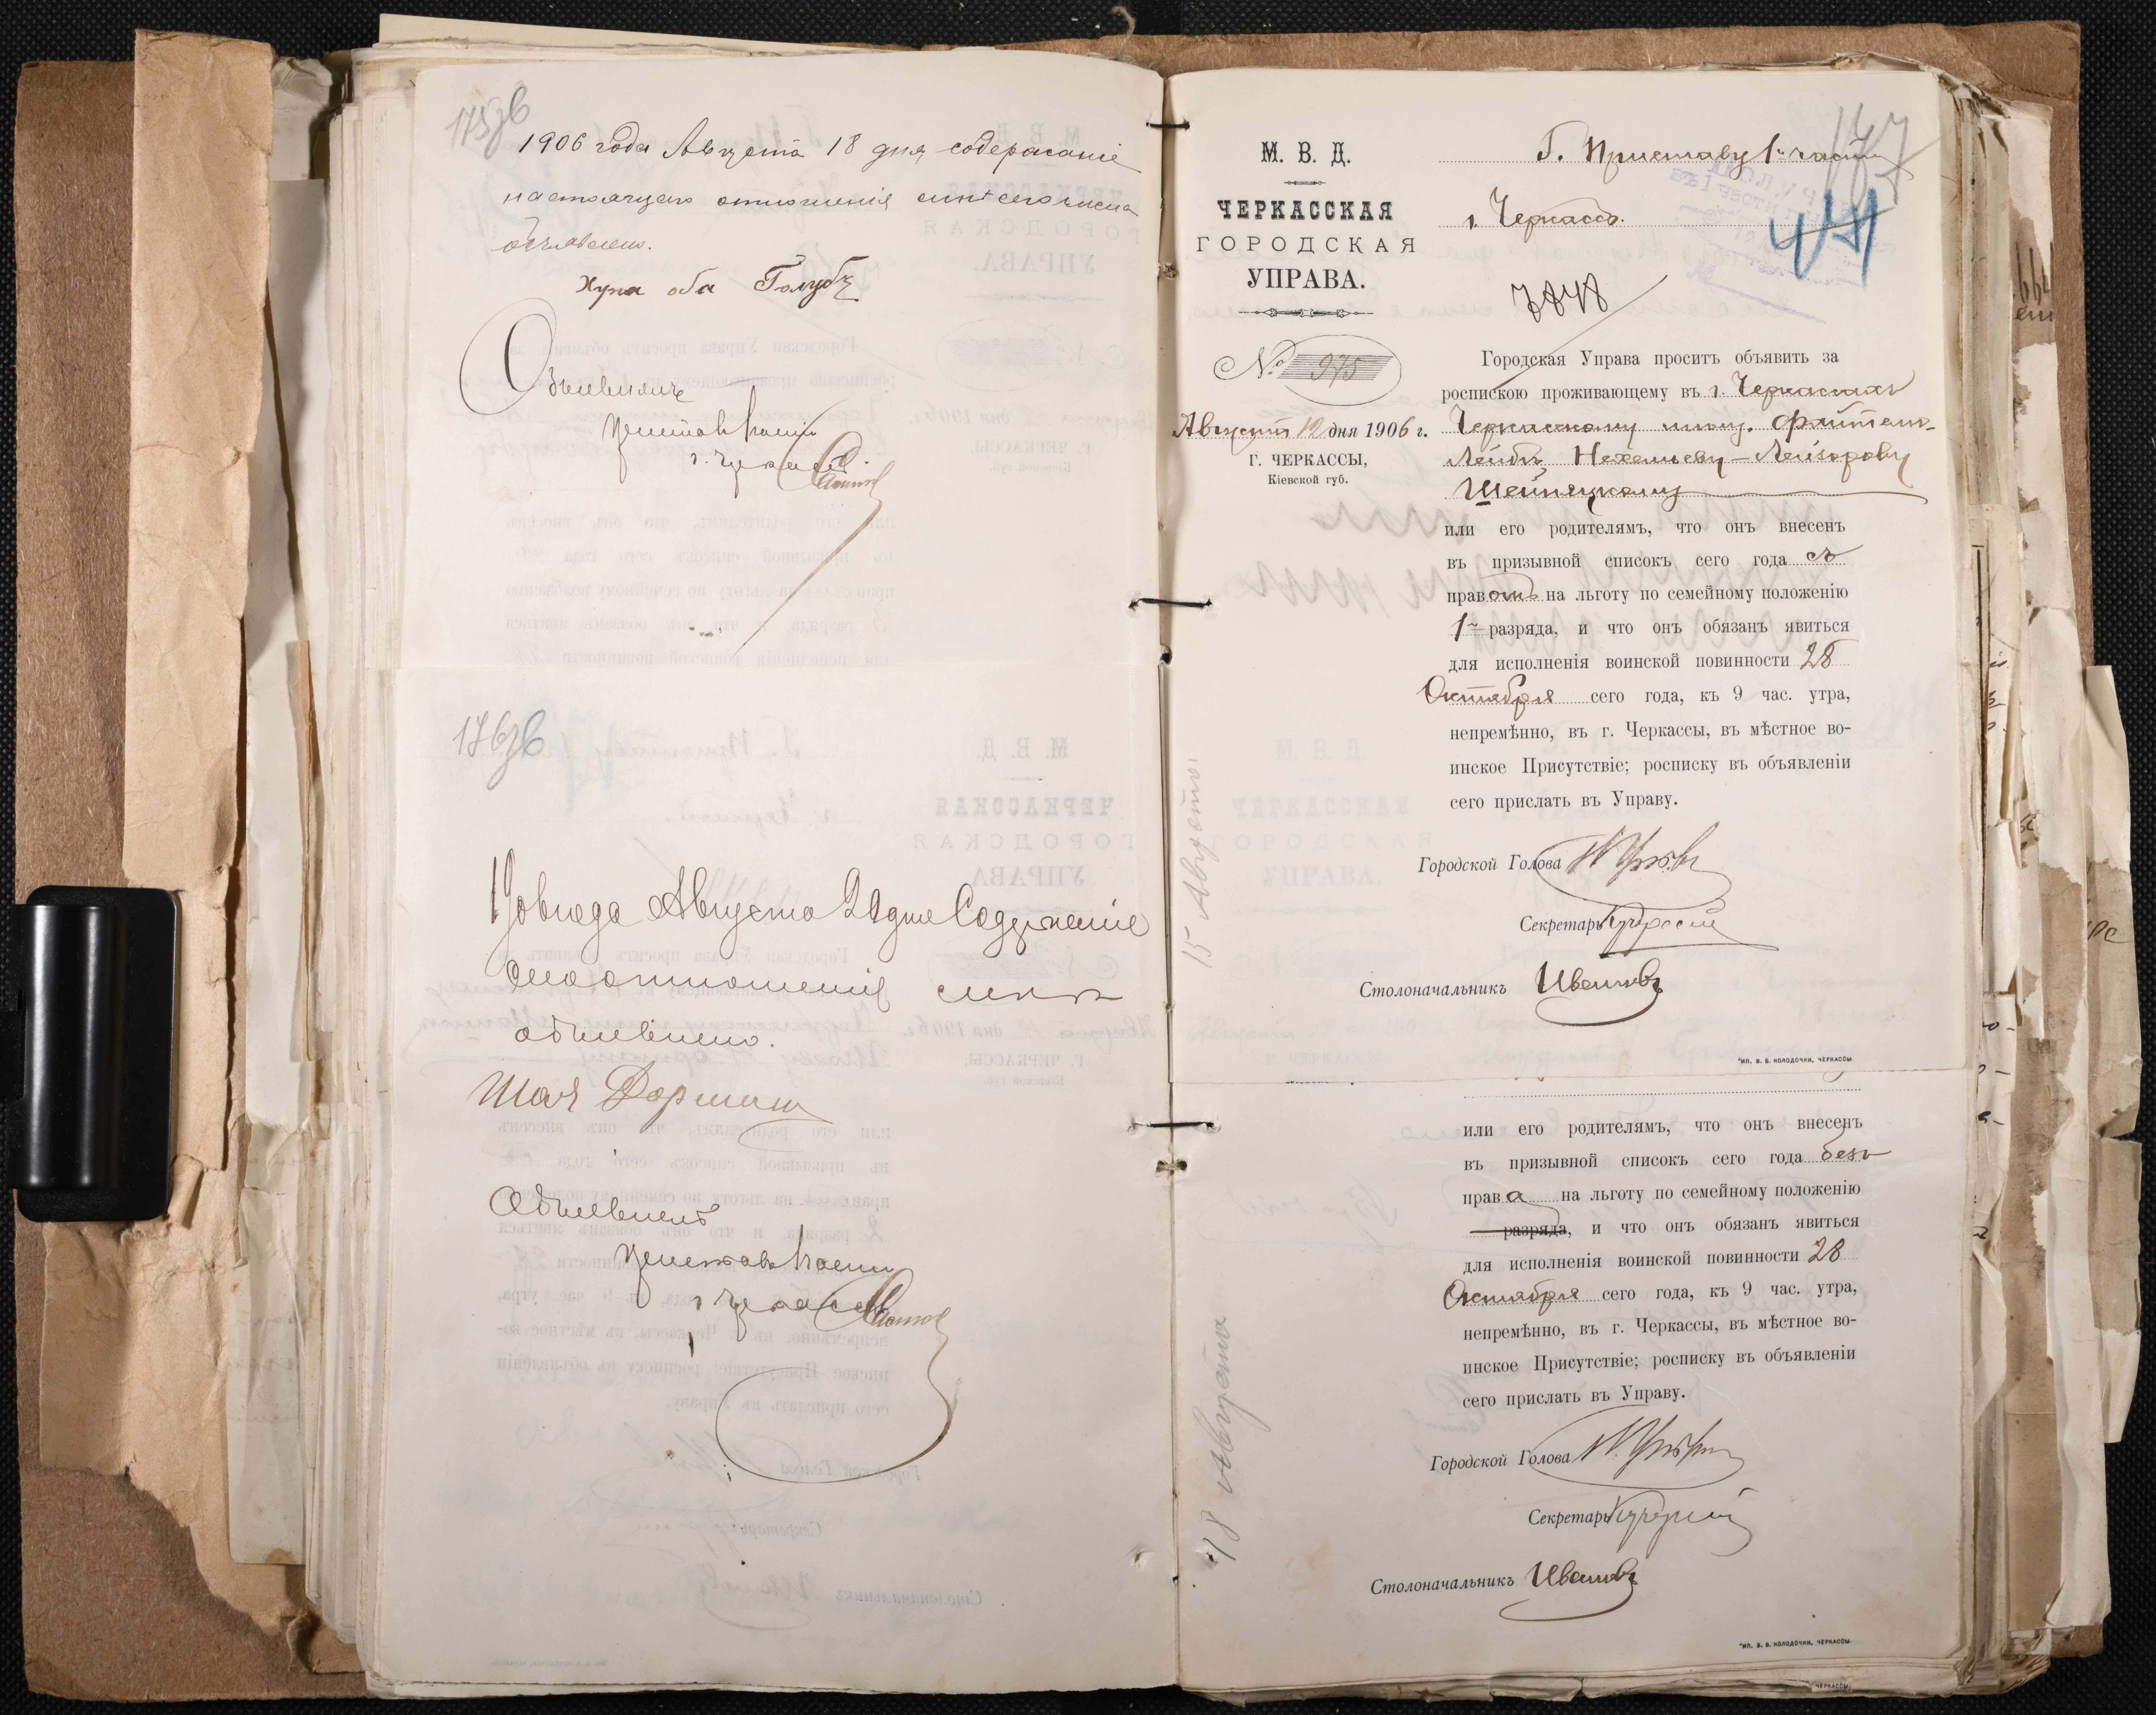 175зв
1906 года Августа 18 дня содержаніе
настоящаго отношенія мнѣ сего числа
объявлено.
Голубъ
Объявилъ
Приставъ 1 части
г. Черкассъ
176зв
1906 года Августа дня Содержаніе
сего отношенія мнѣ
объявлено.
Шая
Объявилъ
Приставъ 1 части
г. Черкассъ
177
М. В. Д.
ЧЕРКАССКАЯ
ГОРОДСКАЯ
УПРАВА.
№ 975
Августа 12 дня 1906 г.
Г. ЧЕРКАССЫ,
Кіевской губ.
Г. Приставу 1й части
г. Черкассъ.
Городская Управа проситъ объявить за
роспискою проживающему въ г. Черкассахъ
Черкасскому мѣщ. Файтель-
Лейбѣ Нехемьеву-Лейзорову
или его родителямъ, что онъ внесенъ
въ призывной списокъ сего года съ
правомъ на льготу по семейному положенію
1го разряда, и что онъ обязанъ явиться
для исполненія воинской повинности 28
Октября сего года, къ 9 час. утра,
непремѣнно, въ г. Черкассы, въ мѣстное во-
инское Присутствіе; росписку въ объявленіи
сего прислать въ Управу.
Городской Голова
Секретарь
Столоначальникъ Ивановъ
ТИП. В. В. КОЛОДОЧКИ, ЧЕРКАССЫ
15 Августа
или его родителямъ, что онъ внесенъ
въ призывной списокъ сего года безъ
права на льготу по семейному положенію
разряда, и что онъ обязанъ явиться
для исполненія воинской повинности 28
Октября сего года, къ 9 час. утра,
непремѣнно, въ г. Черкассы, въ мѣстное во-
инское Присутствіе; росписку въ объявленіи
сего прислать въ Управу.
Городской Голова
Секретарь
Столоначальникъ Ивановъ
ТИП. В. В. КОЛОДОЧКИ, ЧЕРКАССЫ
18 Августа
ЧЕРКАССЫ